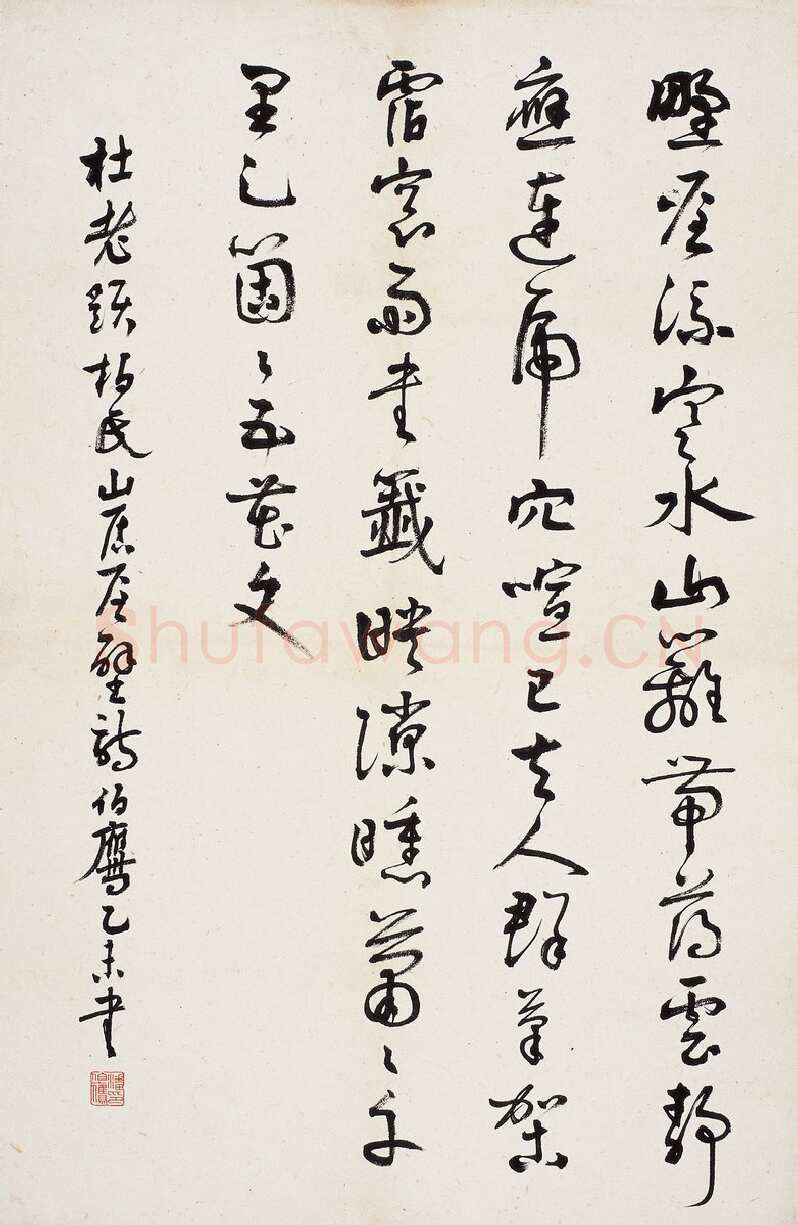 野屋流寒水山籬帶薄雲靜
應連虎穴喧已去人群筆架
霑窗雨書籤映隙曛蕭〻千
里足箇〻五花文
杜老題柏氏山居屋壁詩伯鷹乙未書
Shufawang.CN